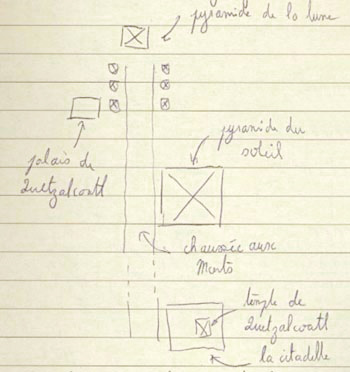 pyramide de la lune
pyramide du
soleil
palais de
Quetzalcoatl
chaussée aux
Morts
temple de
Quetzalcoatl
la citadelle